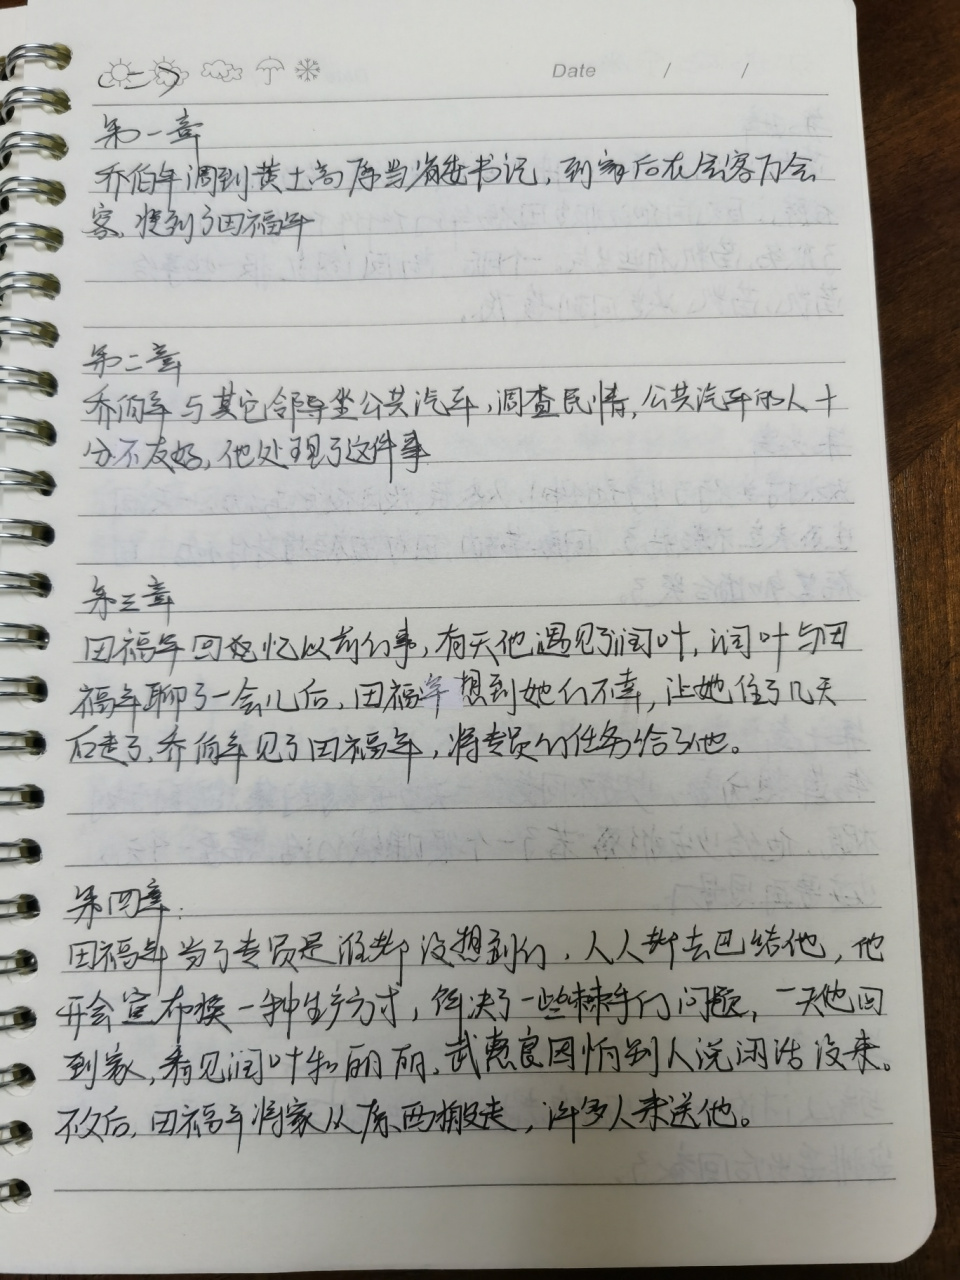 Date / /
第一章
乔伯年调到黄土高原当省委书记,到家后在会客厅会
客,想到了田福军
第二章
乔伯年与其它领导坐公共汽车,调查民情,公共汽车的人十
分不友好,他处理了这件事
第三章
田福军回忆以前的事,有天他遇见了润叶,润叶与田
福军聊了一会儿后,田福军想到她们不幸,让她住了几天
后走了,乔伯年见了田福军,将专员的任务给了他。
第四章:
田福军当了专员是谁都没想到的,人人都去巴结他,他
开会宣布换一种生产方式,解决了一些棘手的问题,一天他回
到家,看见润叶和丽丽,武惠良因怕别人说闲话没来。
不久后,田福军将家从原西搬走,许多人来送他。